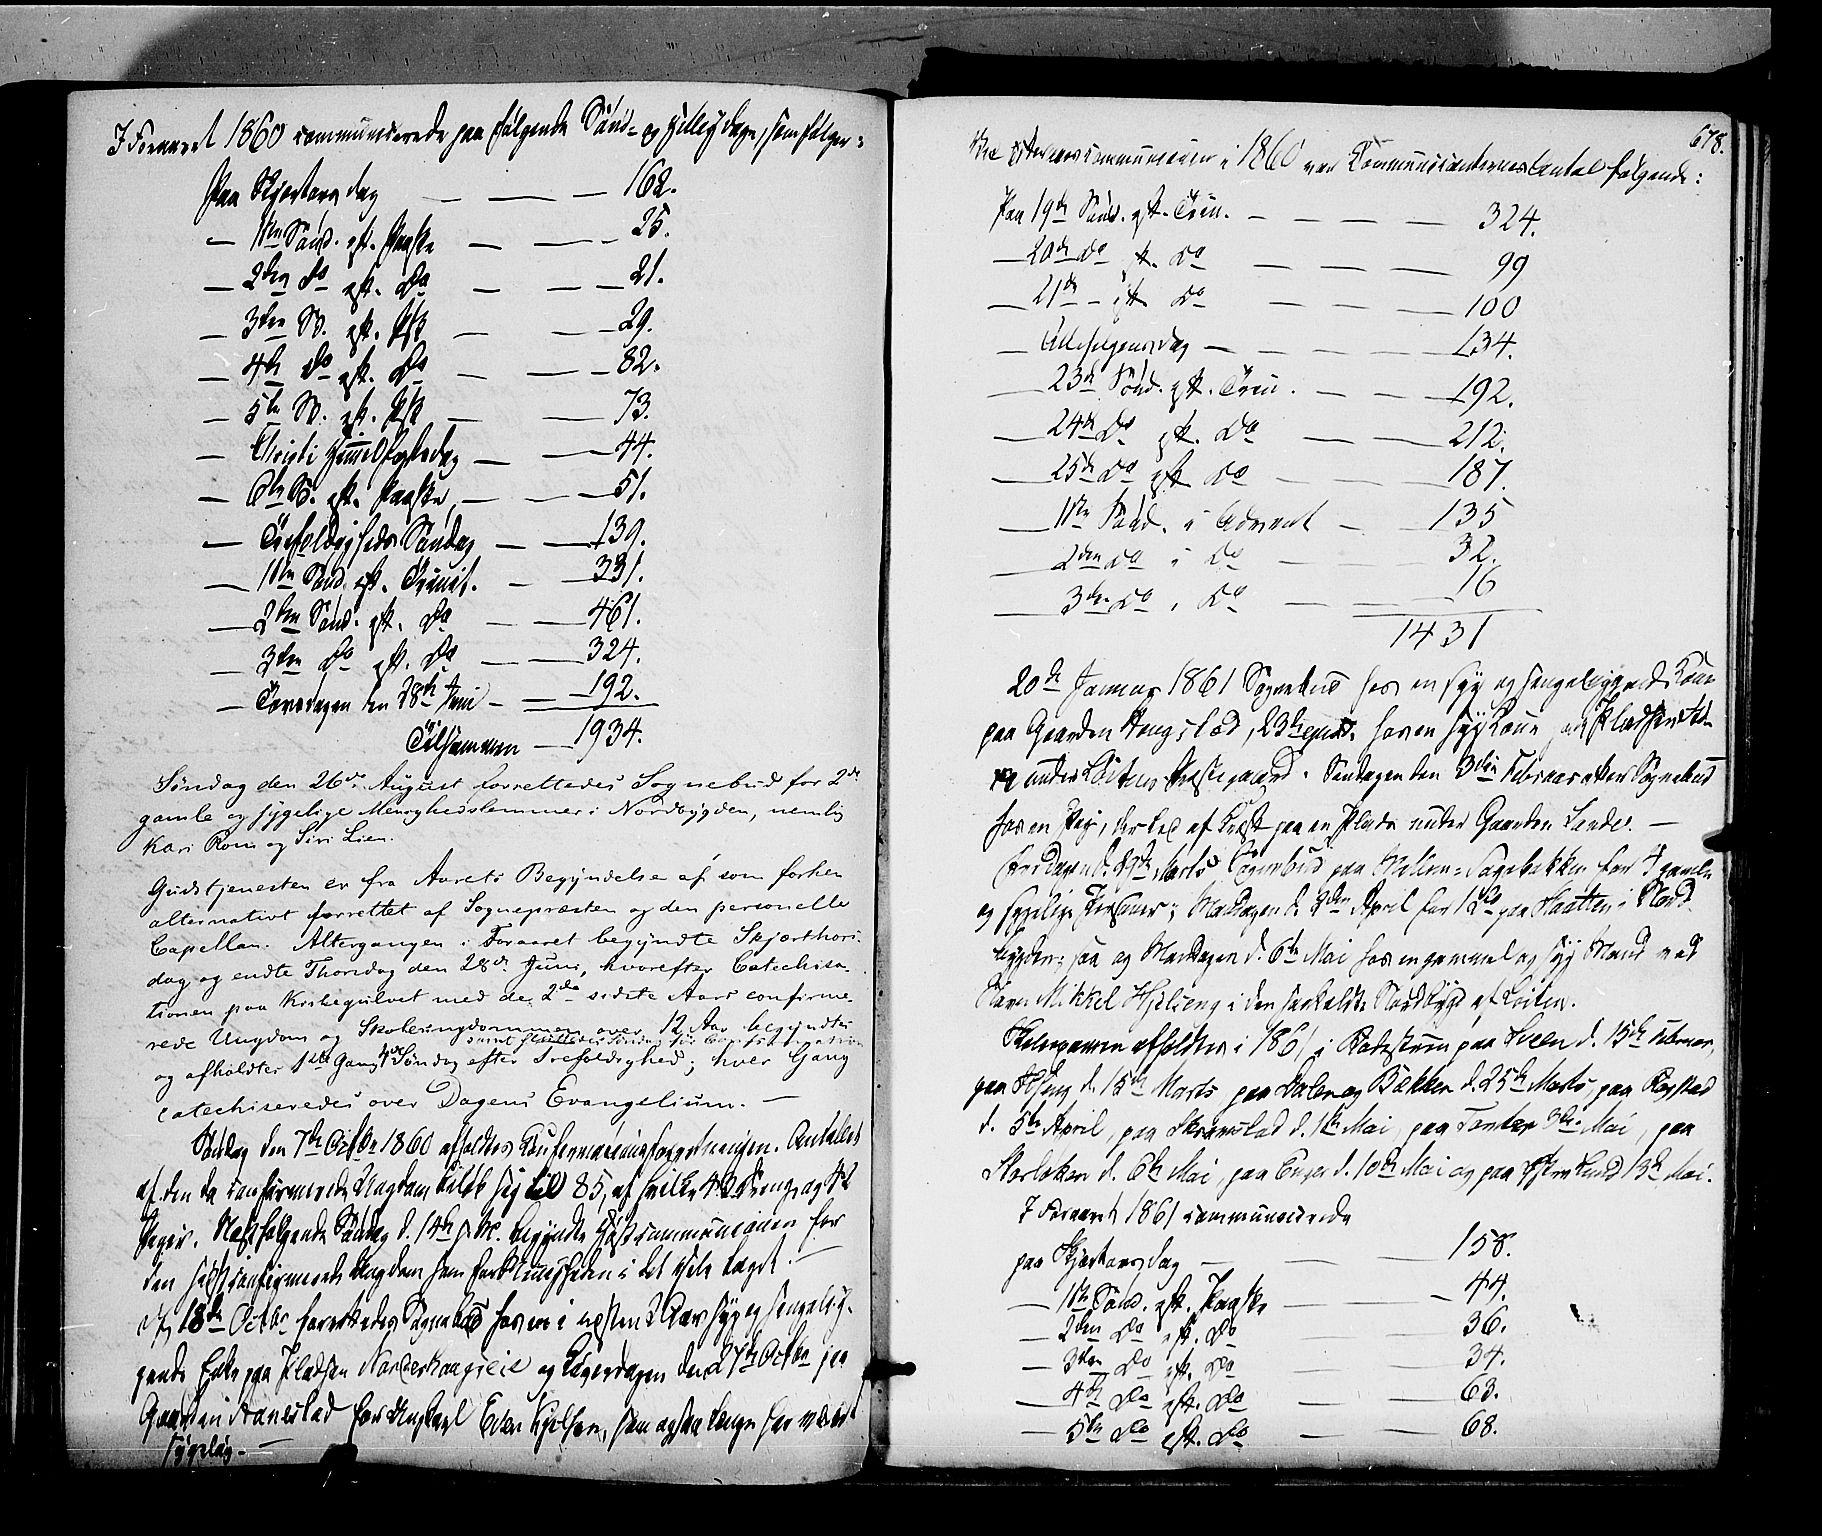 I Foraaret 1860 communicerede paa følgende Sønd- og Helligdage, som følger:
Paa Skjærtorsdag — — — 162.
— 1ste Sønd. eft. Paaske — — — 25.
— 2den do eft. do — — — 21.
— 3die S. eft. Psk — — — 29.
— 4de do eft. do — — — 82.
— 5te S. eft. Psk — — 73.
— Christi Himmelfartsdag — — 44.
— 6te S. eft. Paaske — — — 51.
— Trefoldigheds Søndag — — 139.
— 1ste Sønd. eft. Trinit. — — 331.
— 2den Sønd. eft. do — — 461.
— 3die do eft. do — — 324.
— Torsdagen den 28de Juni — — 192.
Tilsammen — 1934.
Søndag den 26de August forrettedes Sognebud for 2de
gamle og sygelige Menighedslemmer i Nordbygden, nemlig
Kari Rom og Siri Lien.
Gudstjenesten er fra Aarets Begyndelse af som forhen
alternativt forrettet af Sognepræsten og den personelle
Capellan. Altergangen i Foraaret begyndte Skjærthors-
dag og endte Thorsdag den 28de Juni, hvorefter Catechisa-
tionen paa Kirkegulvet med de 2de sidste Aars confirme-
rede Ungdom og Skoleungdommen over 12 Aar begyndte
samt Søndag før Confirmation
og afholdtes 1ste Gang 4de Søndag efter Trefoldighed; hver Gang
catechiseredes over Dagens Evangelium. —
Søndag den 7de Octbr 1860 afholdtes Confirmationsforretningen. Antallet
af den da confirmerede Ungdom beløb sig til 85, af hvilke 43 Drenge og 42
Piger. Næstfølgende Søndag d. 14de begyndte Høstcommunionen for
den sidstconfirmerede Ungdom som for Menigheden i det Hele taget. —
18de Octbr forrettedes Sognebud hos en i næsten 2 Aar syg og sengelig-
gende Enke paa Pladsen og Løverdagen den 27de Octbr paa
Gaarden Aanestad for Ungkarl Even Kjelsen, som ogsaa længe har været
sygelig. —
678.
Ved Høstcommunionen i 1860 var Communicanternes Antal følgende:
Paa 19de Sønd. eft. Trin. — — — — 324.
— 20de do eft. do — — — 99
— 21de — eft do — — — 100
— Allehelgensdag — — — — 134.
— 23de Sønd. eft. Trin. — — — 192.
— 24de do eft. do — — — 212.
— 25de do eft do — — — 187.
— 1ste Sønd. i Advent — — 135
— 2den do i do — — 32.
— 3die do i do — — — 16
1431
20de Januar 1861 Sognebud hos en syg og sengeliggende Kone
paa Gaarden Haugstad, 23de ejusd. hos en syg Kone paa Pladsen
under Løitens Præstegaard. Søndagen den 3die Februar atter Sognebud
hos en Pige, der led af paa en Plads under Gaarden Sande. —
Marts Sognebud paa for 4 gamle
og sygelige Personer; Mandagen d. April for 12 paa Haatten i Nord-
bygden; saa og Mandagen d. 6te Mai hos en gammel og syg Mand ved
Navn Mikkel Hjelseng i den saakaldte Nordbygd af Løiten.
Skoleexamen afholdtes i 1861 i Rodestuen paa Sveen d. 15de Februar,
paa d. 15de Marts, paa Dalen og Bækken d. 25de Marts, paa Rogstad
d. 5te April, paa Skramstad d. 1ste Mai, paa Tønter 3die Mai, paa
Storløken d. 6te Mai, paa Enger d. 10de Mai og paa Østerlund 13de Mai.
I Foraaret 1861 communicerede
paa Skjærtorsdag — — — 158.
— 1ste Sønd. eft. Paaske — — 44.
— 2den do eft. do — — 36.
— 3die do eft. do — — 34.
— 4de do eft. do — — 63.
— 5te do eft. do — — 68.